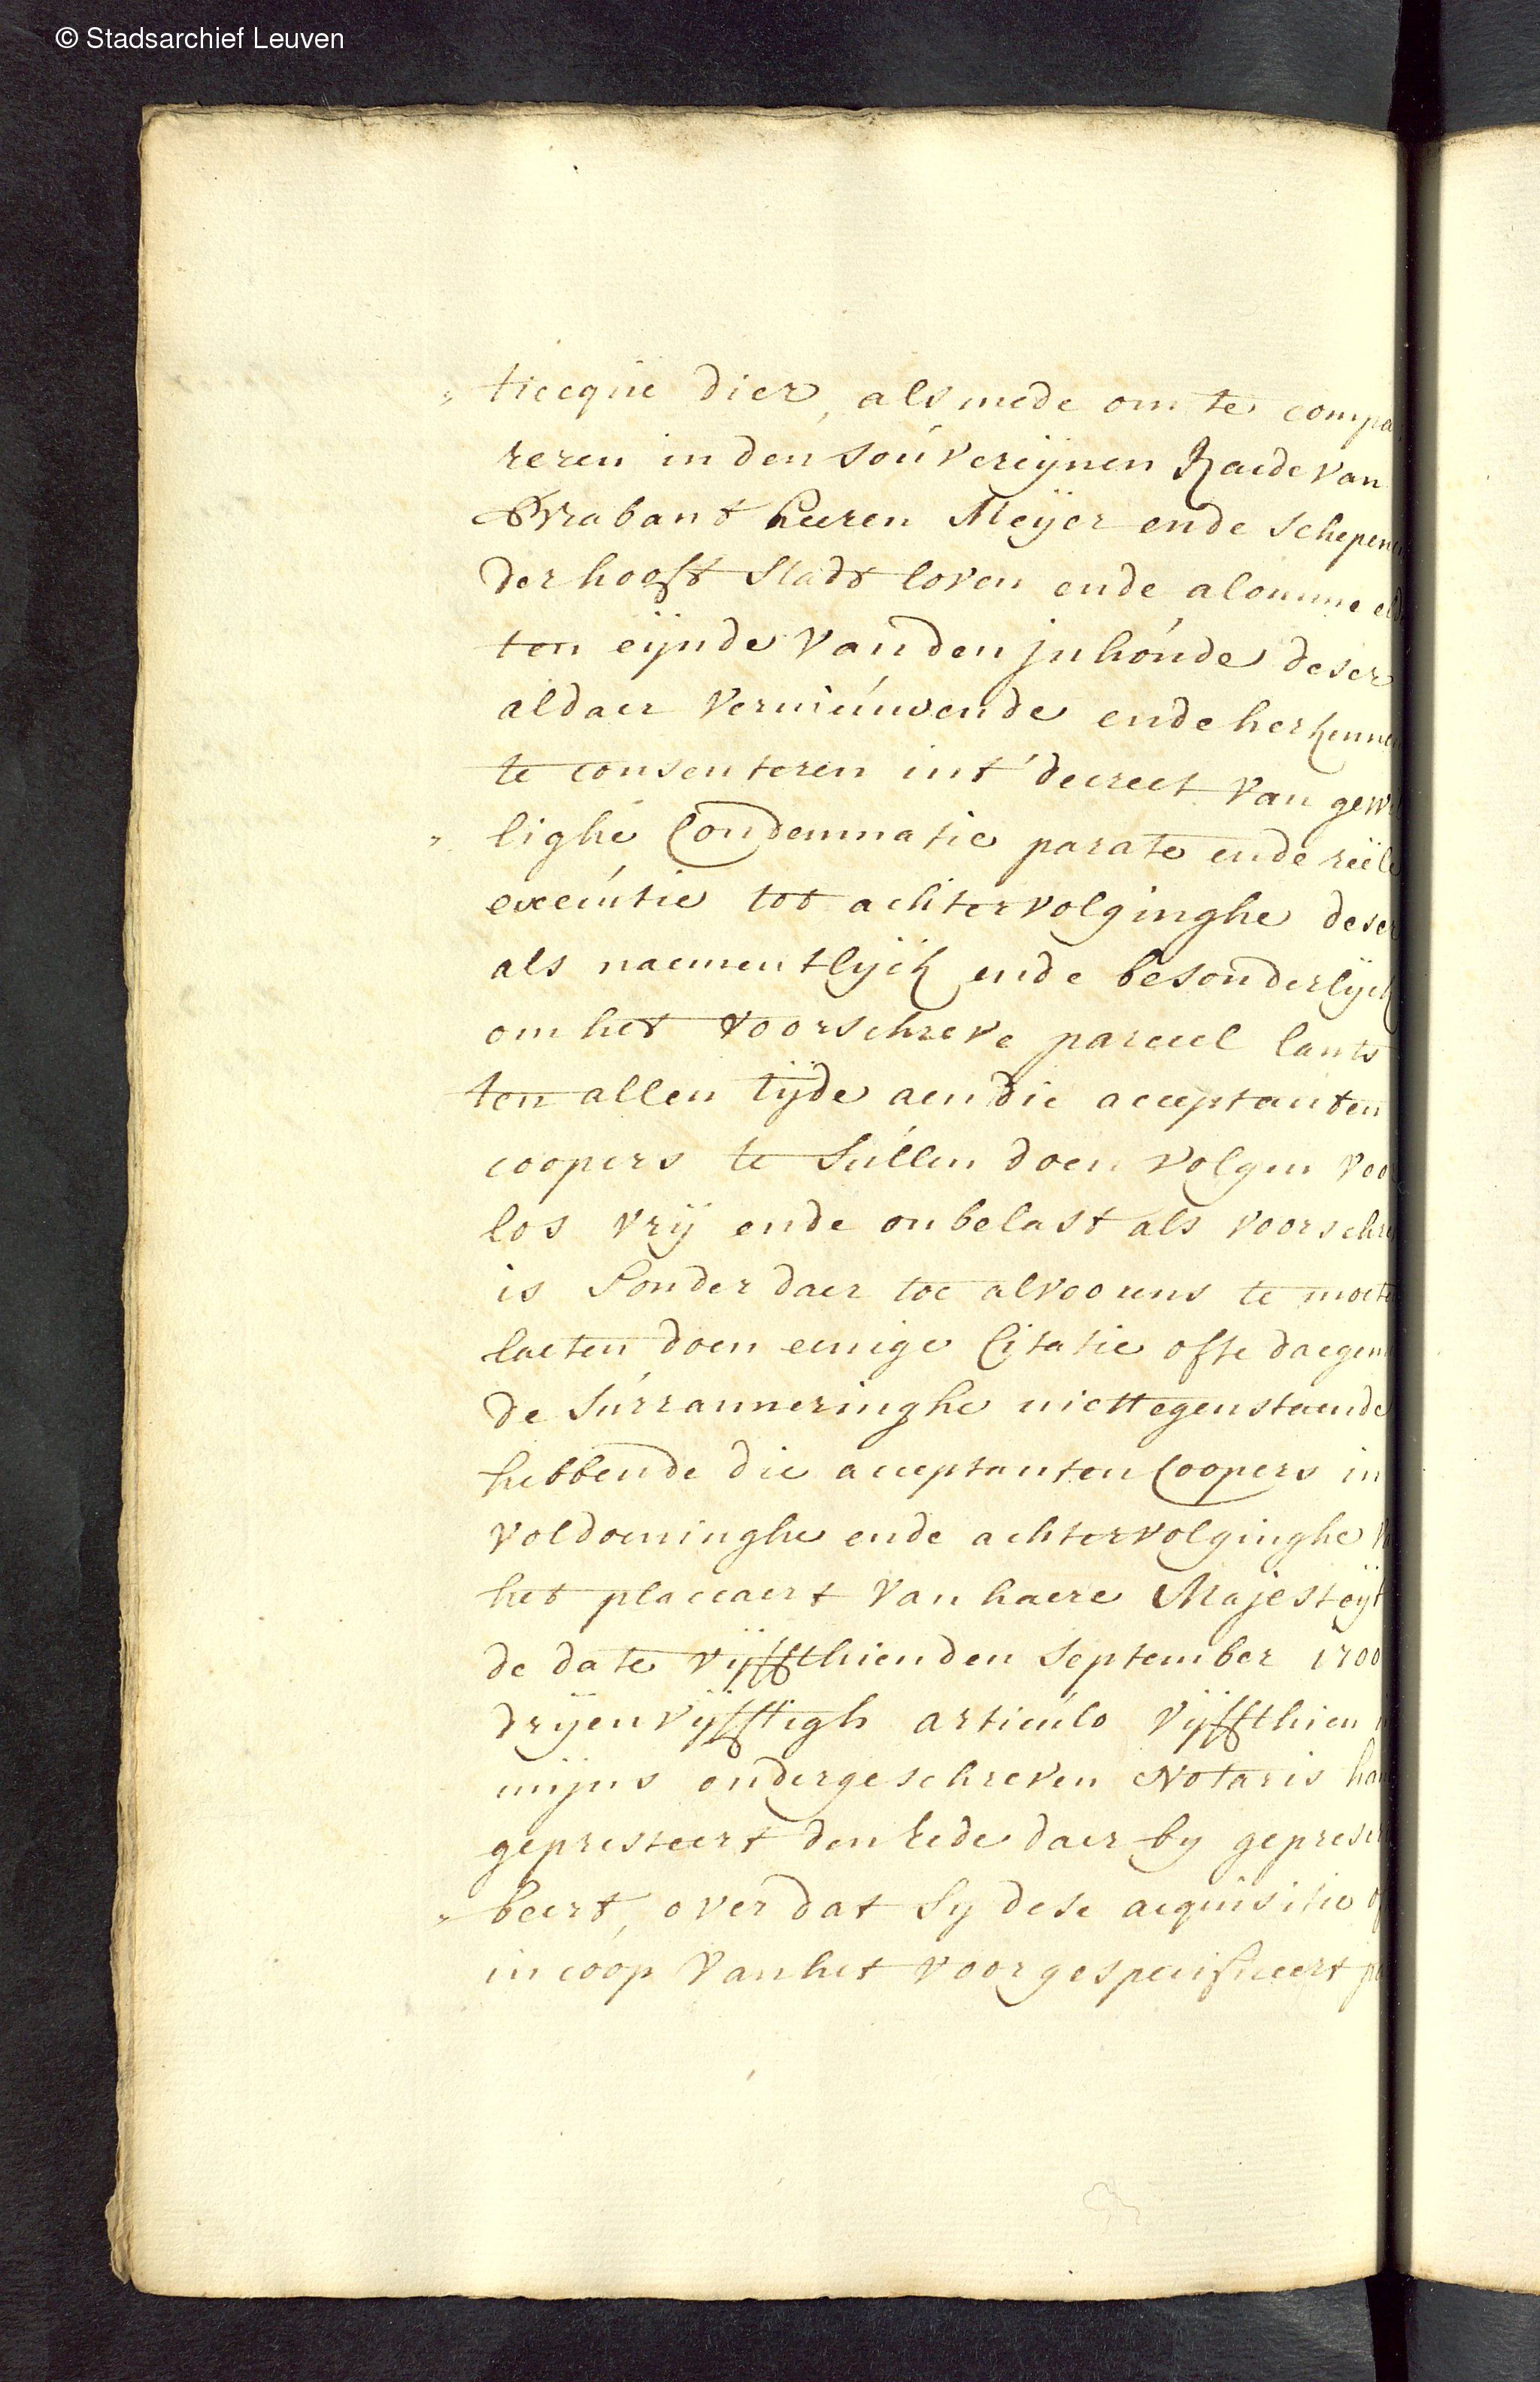 © Stadsarchief Leuven
„ ticcque dier, als mede om te compa
reren in den souvereijnen Raede van
Brabant heeren Meijer ende schepenen
der hooft Stadt loven ende alomme
ten eijnde van den inhoude deser
aldaer vernieuwende ende herkenne
te consenteren int decreet van gewi
„ lighe Condemnatie parate ende reële
executie tot achtervolginghe deser
als naementlijck ende besonderlijck
om het voorschreve parceel lants
ten allen tijde aen die acceptanten
coopers te sullen doen volgen voor
los vrij ende onbelast als voorschre
is sonder daer toe alvoorens te moeten
laeten doen eenige Citatie ofte daegem
de surranneringhe niettegenstaende
hebbende die acceptanten Coopers in
voldoeninghe ende achtervolginghe
het placcaert van haere Majesteijt
de date vijffthienden september 1700
drijenvijfftigh articulo vijffthien
mijns ondergeschreven Notaris han
gepresteert den eede daer by gepresc
„ beert, over dat sy dese acquisitie
in coop van het voorgespecificeert